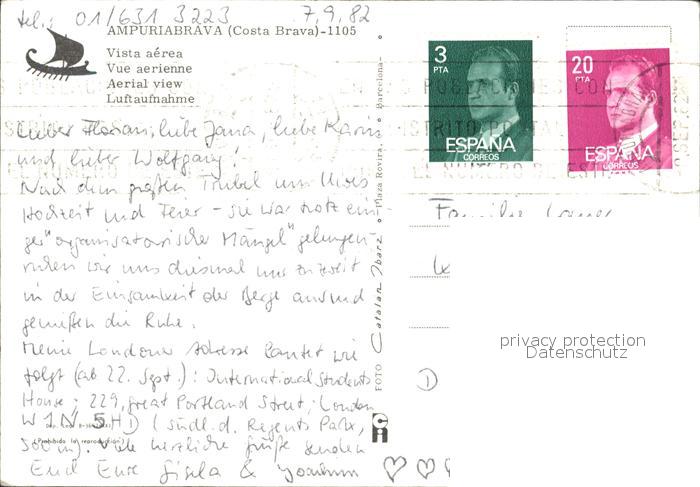 tel.: 01/631 3223 7.9.82
AMPURIABRAVA (Costa Brava)-1105
Vista aérea
Vue aerienne
Aerial view
Luftaufnahme
3 PTA
ESPAÑA
CORREOS
20 PTA
ESPAÑA
CORREOS
Lieber Florian, liebe Jana, liebe Karin
und lieber Wolfgang!
Nach dem großen Trubel um
Hochzeit und Feier - sie war trotz eini
ger "organisatorischer Mängel" gelungen -
ruhen wir uns diesmal nur zu zweit
in der Einsamkeit der Berge aus und
genießen die Ruhe.
Meine Londoner Adresse lautet wie
folgt (ab 22. Sept.): International Students
House; 229, great Portland Street; London
W1N 5HD (südl. d. Regents Park,
300 m). Viele herzliche Grüße senden
Euch Eure Gisela & Joachim
(Prohibida la reproducción)
FOTO Catalan Ibarz - Plaza Rovira, Barcelona-
Familie
D
privacy protection
Datenschutz